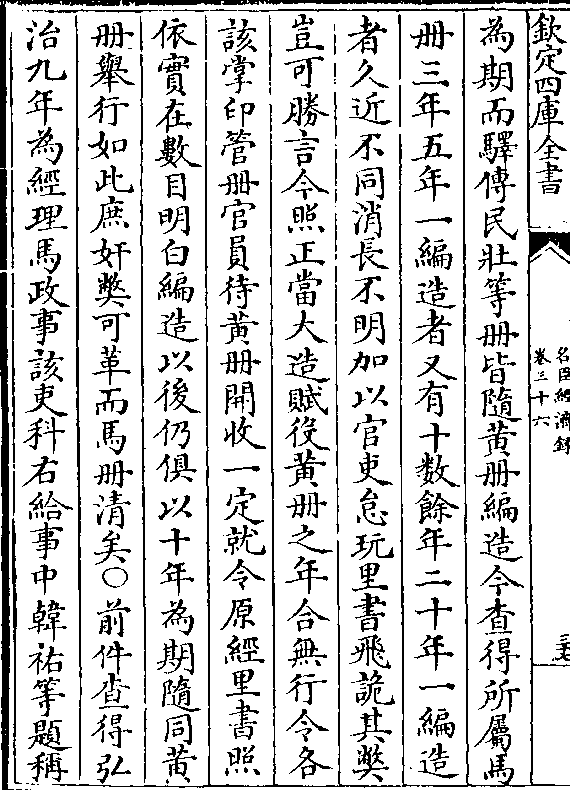 欽定四庫全書
名臣經濟錄
卷三十六
為期而驛傳民壯等册皆隨黃册編造今查得所屬馬
册三年五年一編造者又有十數餘年二十年一編造
者久近不同消長不明加以官吏怠玩里書飛詭其弊
豈可勝言今照正當大造賦役黃册之年合無行令各
該掌印管册官員待黃册開收一定就令原經里書照
依實在數目明白編造以後仍俱以十年為期隨同黃
册舉行如此庶奸弊可革而馬册清矣○前件查得弘
治九年為經理馬政事該吏科右給事中韓祐等題稱